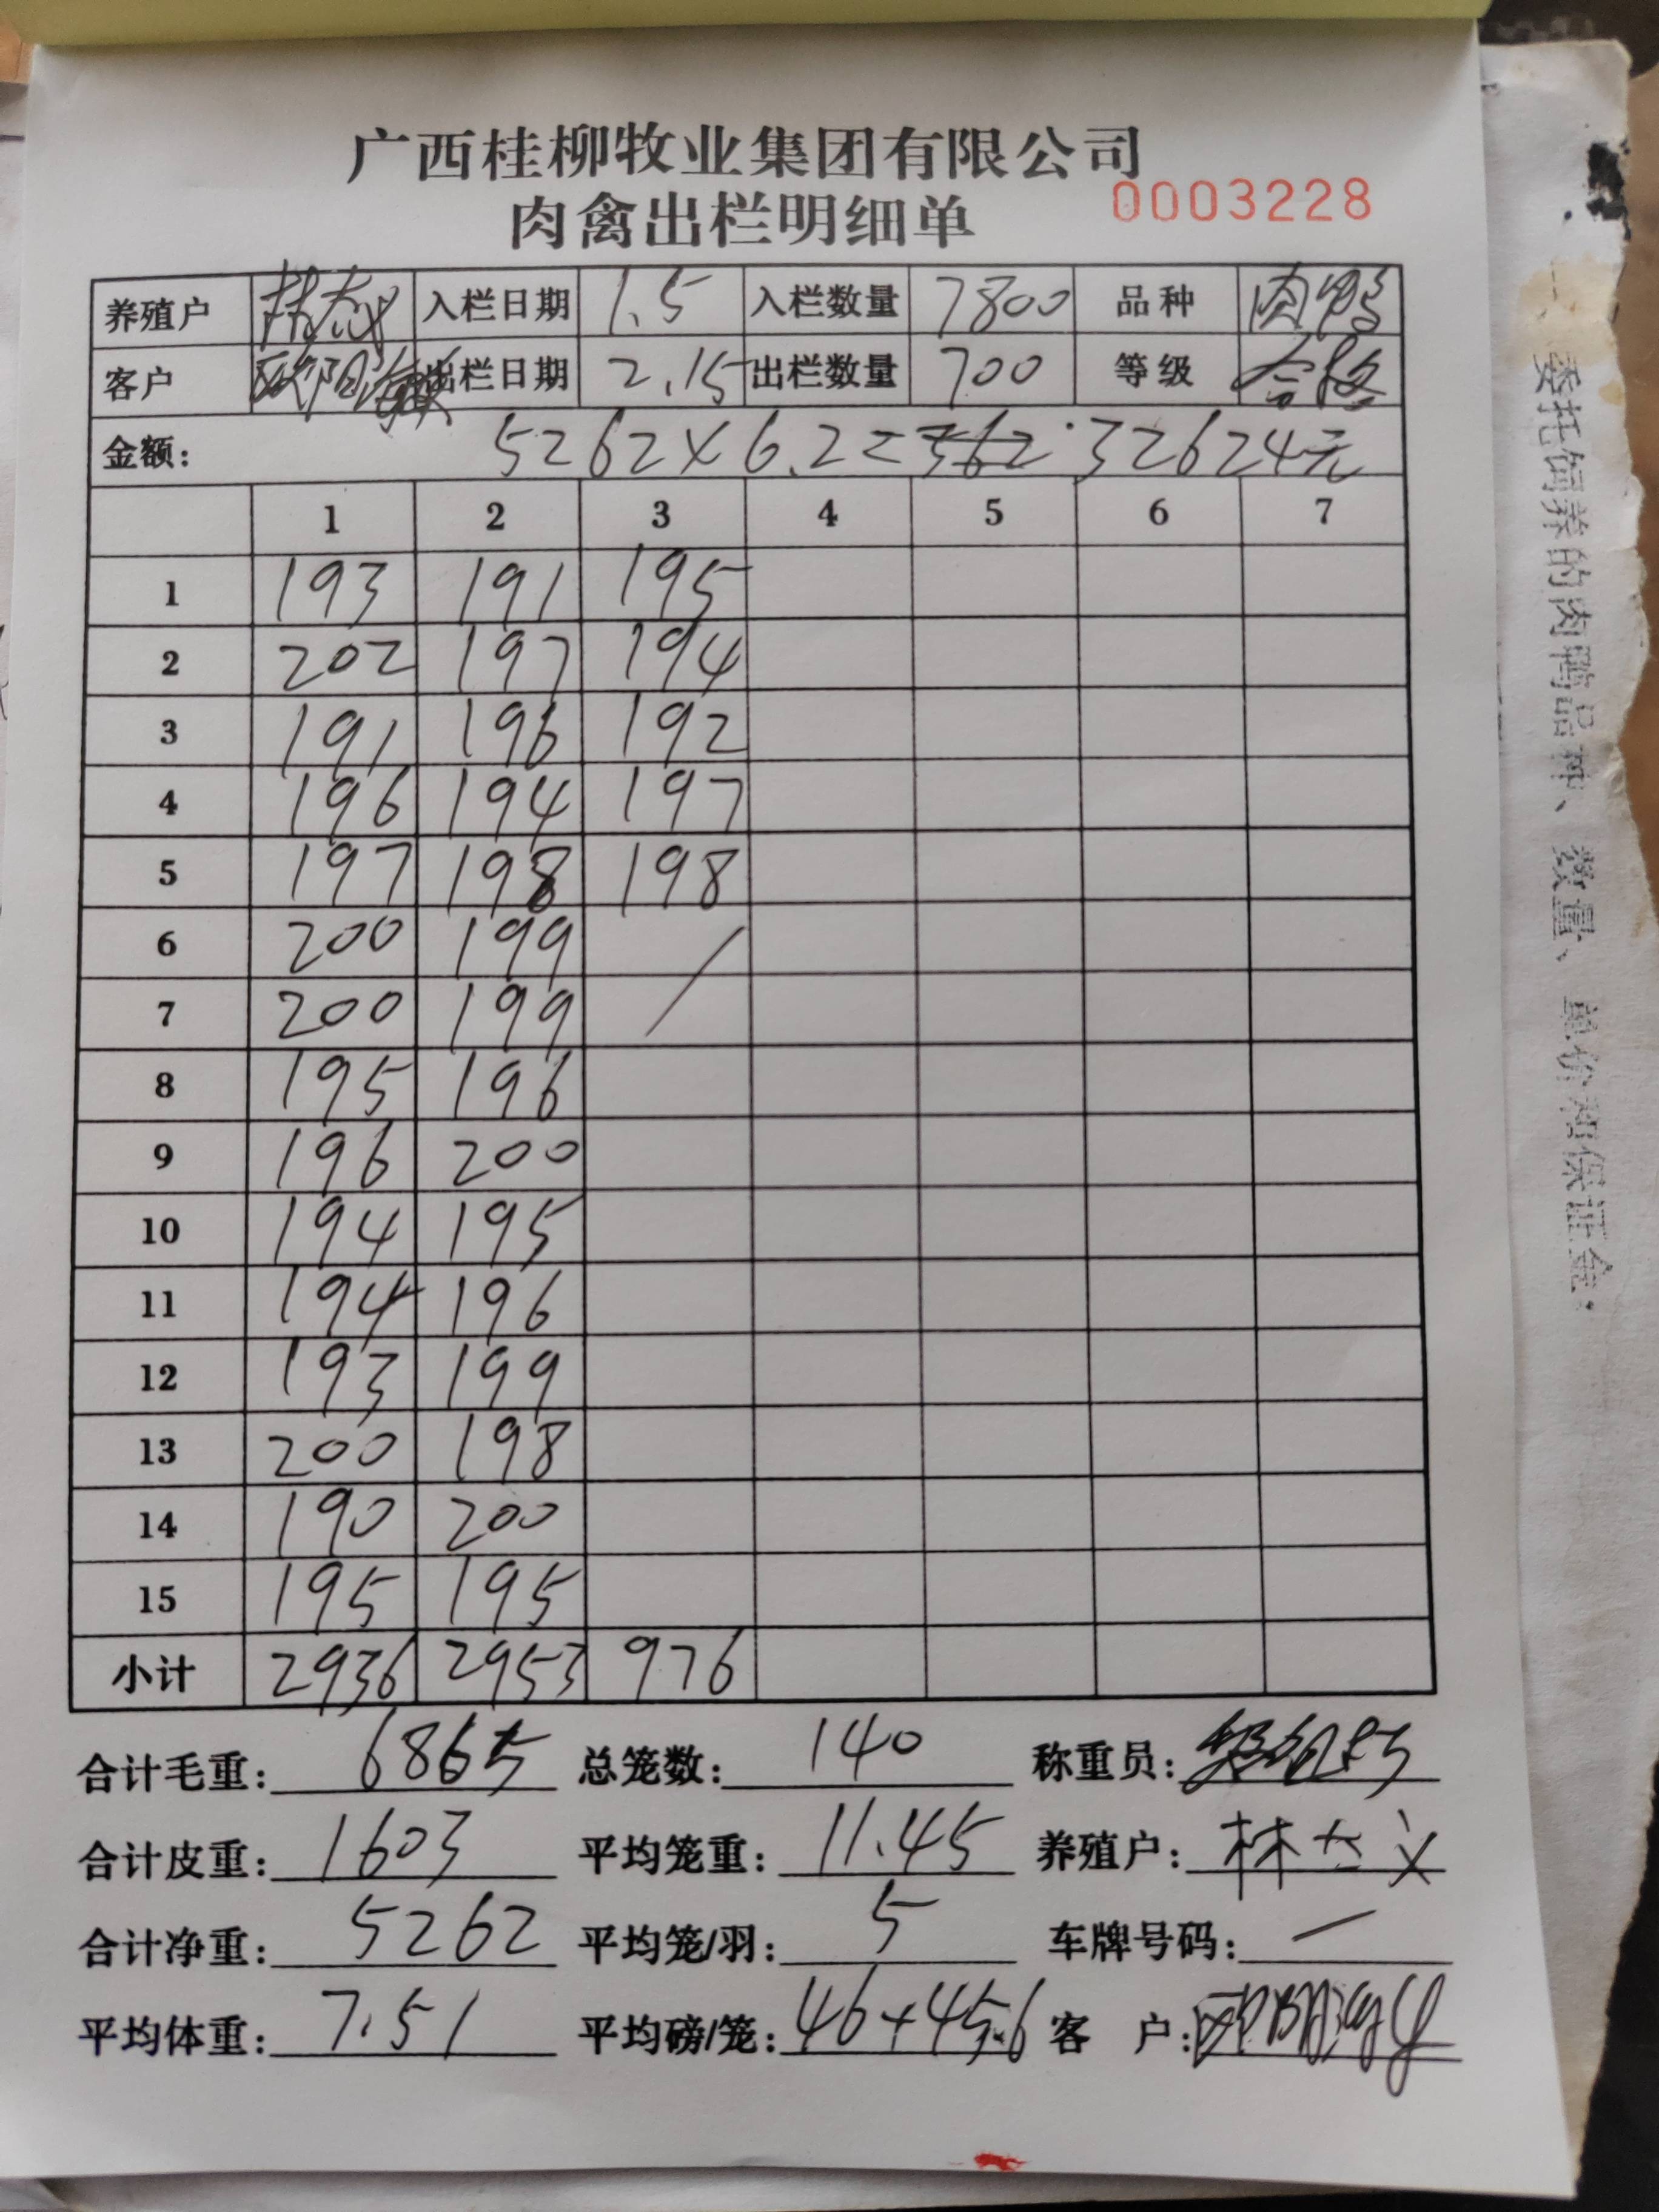 广西桂柳牧业集团有限公司
肉禽出栏明细单 0003228
养殖户 林志义 入栏日期 1.5 入栏数量 7800 品种 肉鸭
客户 欧阳 出栏日期 2.15 出栏数量 700 等级 合格
金额: 5262×6.2= 32624元
1 2 3 4 5 6 7
1 193 191 195
2 202 197 194
3 191 196 192
4 196 194 197
5 197 198 198
6 200 199
7 200 199
8 195 196
9 196 200
10 194 195
11 194 196
12 193 199
13 200 198
14 190 200
15 195 195
小计 2936 2953 976
合计毛重: 6865 总笼数: 140 称重员:
合计皮重: 1603 平均笼重: 11.45 养殖户: 林志义
合计净重: 5262 平均笼/羽: 5 车牌号码: —
平均体重: 7.51 平均磅/笼: 46+45.6 客户:
委托饲养的肉鸭品种、数量、单价和保证金: